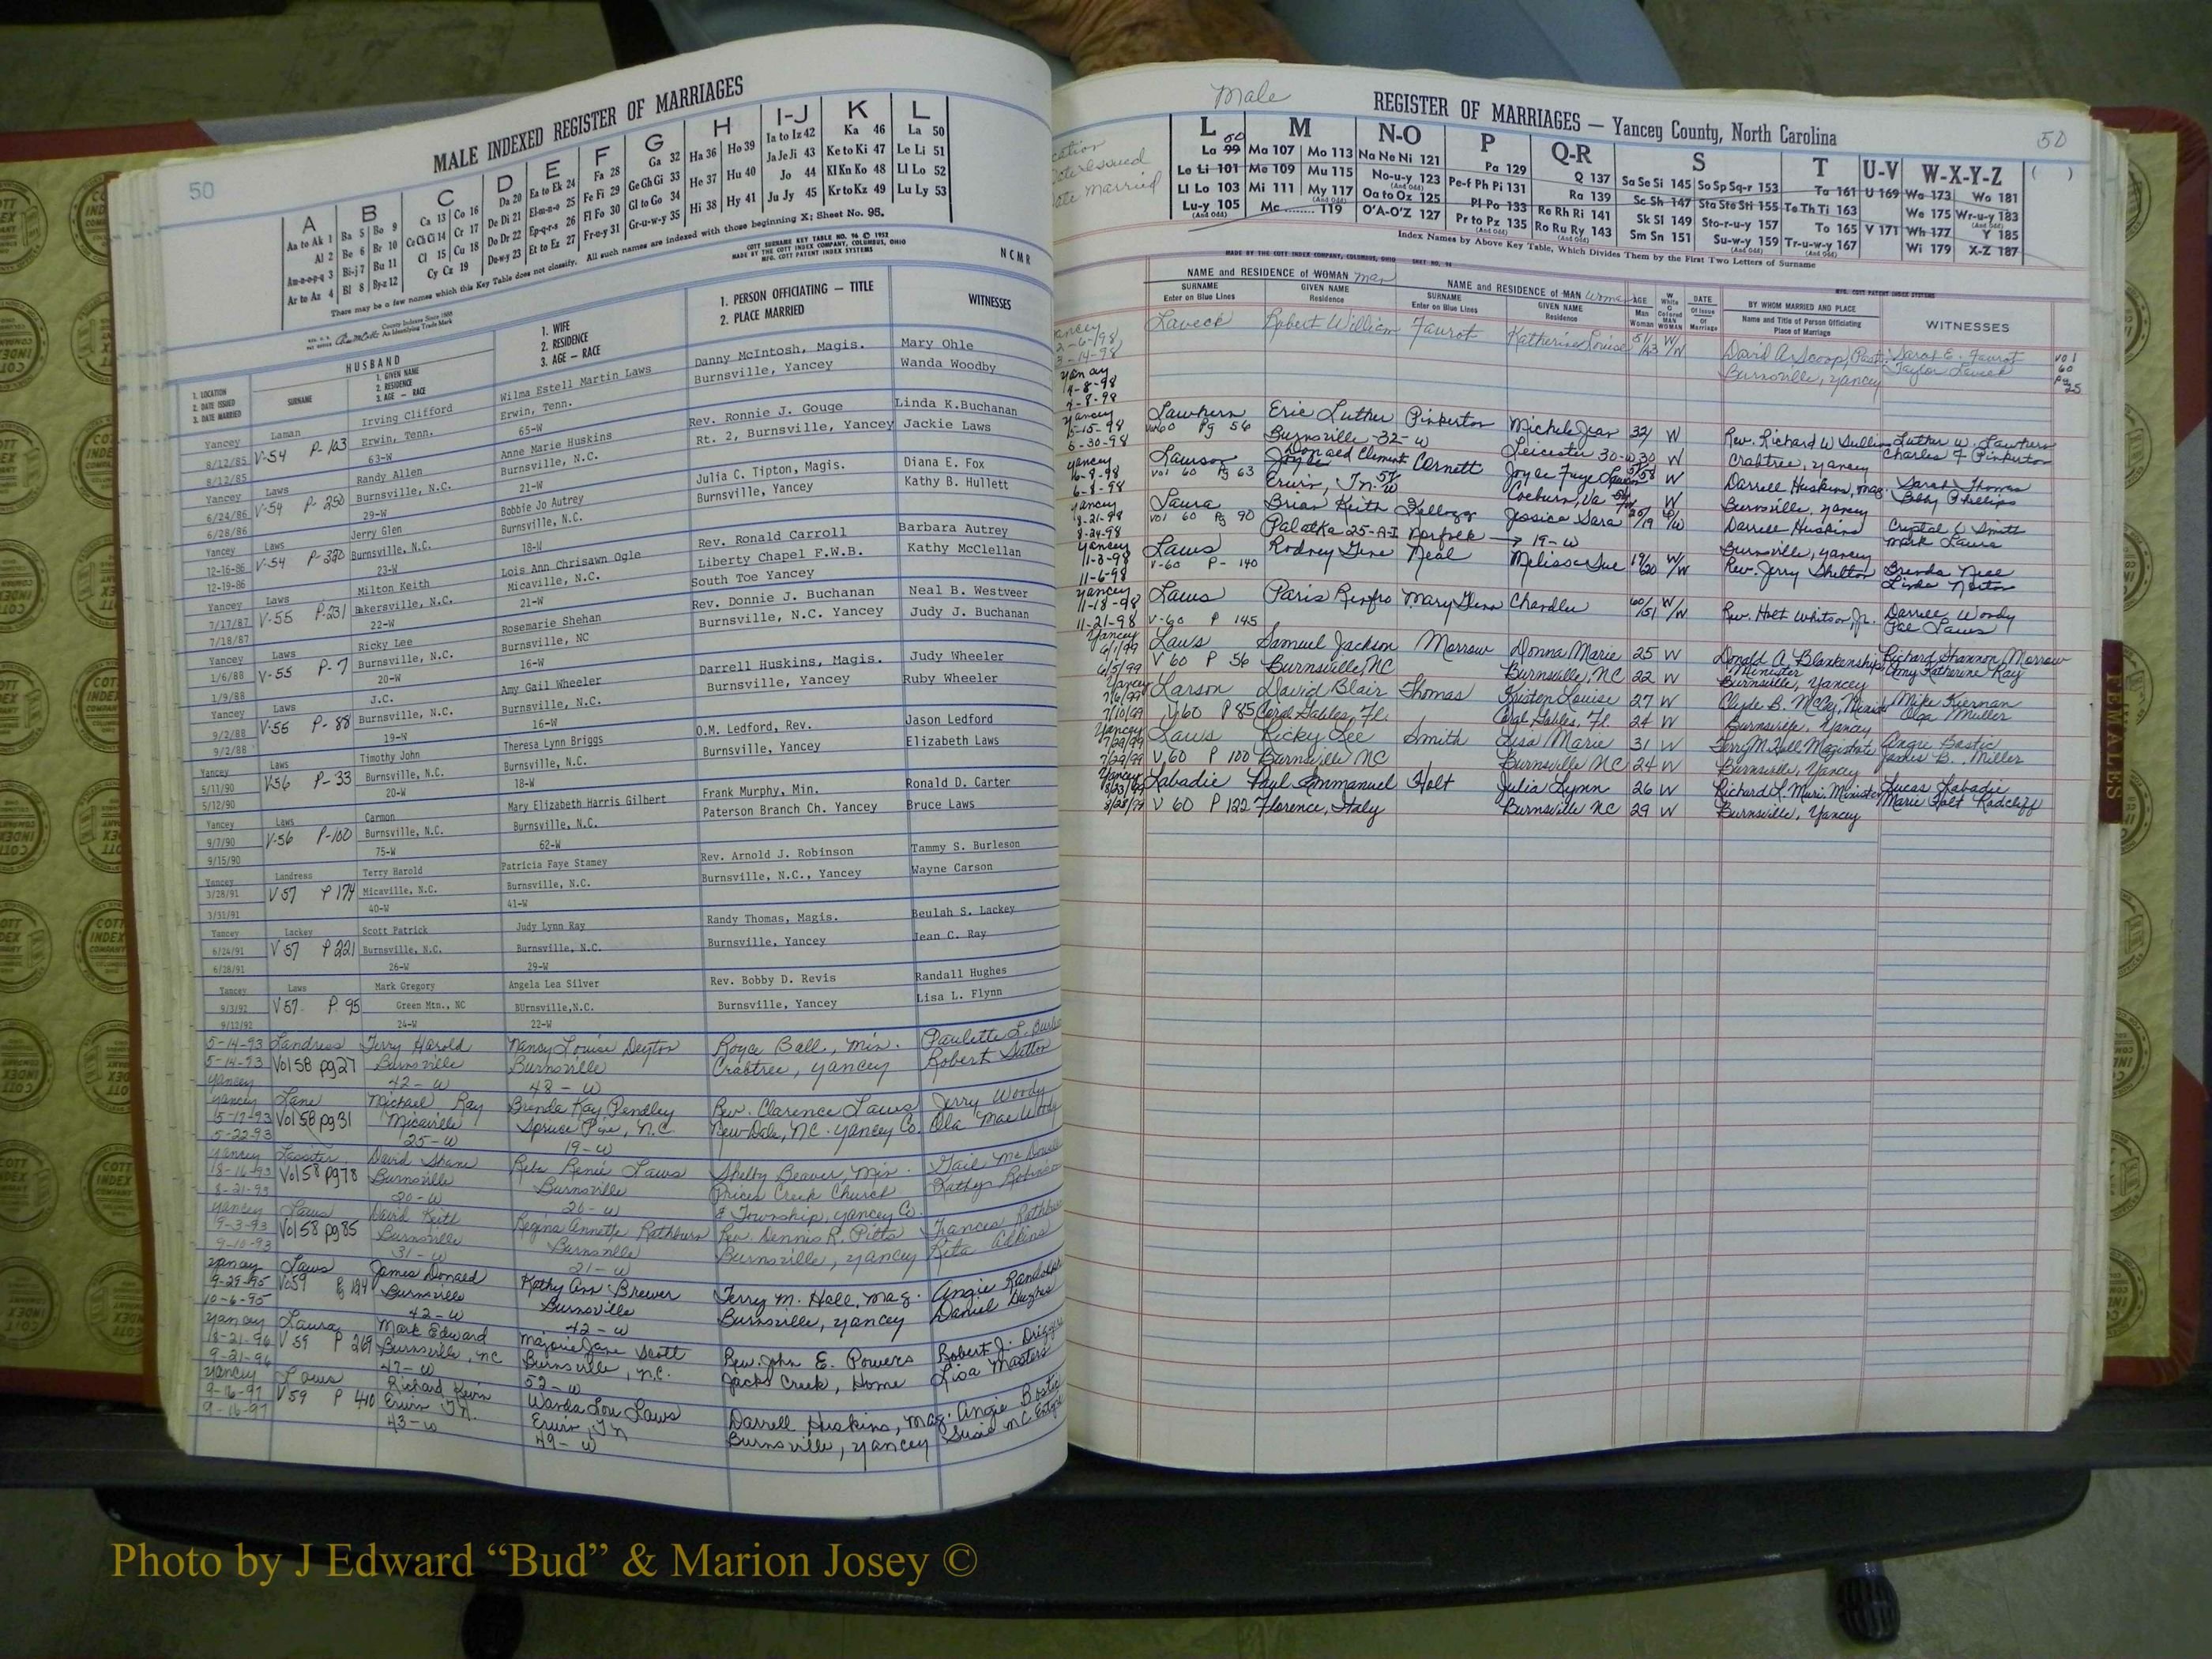 MALE INDEXED REGISTER OF MARRIAGES
50
A
Aa to Ak 1
Al 2
Am-n-o-p-q 3
Ar to Az 4
B
Ba 5 Bo 9
Be 6 Br 10
Bi-j 7 Bu 11
Bl 8 By-z 12
C
Ca 13 Co 16
Ce Ch Ci 14 Cr 17
Cl 15 Cu 18
Cy Cz 19
D
Da 20
De Di 21
Do Dr 22
Du-w-y 23
E
Ea to Ek 24
El-m-n-o 25
Ep-q-r-s 26
Et to Ez 27
F
Fa 28
Fe Fi 29
Fl Fo 30
Fr-u-y 31
G
Ga 32
Ge Gh Gi 33
Gl to Go 34
Gr-u-w-y 35
H
Ha 36 Ho 39
He 37 Hu 40
Hi 38 Hy 41
I-J
Ia to Iz 42
Ja Je Ji 43
Jo 44
Ju Jy 45
K
Ka 46
Ke to Ki 47
Kl Kn Ko 48
Kr to Kz 49
L
La 50
Le Li 51
Ll Lo 52
Lu Ly 53
There may be a few names which this Key Table does not classify. All such names are indexed with those beginning X; Sheet No. 95.
COTT SURNAME KEY TABLE NO. 96 © 1952
MADE BY THE COTT INDEX COMPANY, COLUMBUS, OHIO
MFG. COTT PATENT INDEX SYSTEMS
NCMR
County Indexes Since 1888
An Identifying Trade Mark
1. LOCATION
2. DATE ISSUED
3. DATE MARRIED
HUSBAND
SURNAME
1. GIVEN NAME
2. RESIDENCE
3. AGE — RACE
1. WIFE
2. RESIDENCE
3. AGE — RACE
1. PERSON OFFICIATING — TITLE
2. PLACE MARRIED
WITNESSES
Yancey Laman Irving Clifford Wilma Estell Martin Laws Danny McIntosh, Magis. Mary Ohle
8/12/85 V-54 P-103 Erwin, Tenn. Erwin, Tenn. Burnsville, Yancey Wanda Woodby
8/12/85 63-W 65-W
Yancey Laws Randy Allen Anne Marie Huskins Rev. Ronnie J. Gouge Linda K.Buchanan
6/24/86 V-54 P-250 Burnsville, N.C. Burnsville, N.C. Rt. 2, Burnsville, Yancey Jackie Laws
6/28/86 29-W 21-W
Yancey Laws Jerry Glen Bobbie Jo Autrey Julia C. Tipton, Magis. Diana E. Fox
12-16-86 V-54 P-320 Burnsville, N.C. Burnsville, N.C. Burnsville, Yancey Kathy B. Hullett
12-19-86 23-W 18-W
Yancey Laws Milton Keith Lois Ann Chrisawn Ogle Rev. Ronald Carroll Barbara Autrey
7/17/87 V-55 P-231 Bakersville, N.C. Micaville, N.C. Liberty Chapel F.W.B. Kathy McClellan
7/18/87 22-W 21-W South Toe Yancey
Yancey Laws Ricky Lee Rosemarie Shehan Rev. Donnie J. Buchanan Neal B. Westveer
1/6/88 V-55 P-7 Burnsville, N.C. Burnsville, NC Burnsville, N.C. Yancey Judy J. Buchanan
1/9/88 20-W 16-W
Yancey Laws J.C. Amy Gail Wheeler Darrell Huskins, Magis. Judy Wheeler
9/2/88 V-55 P-88 Burnsville, N.C. Burnsville, N.C. Burnsville, Yancey Ruby Wheeler
9/2/88 19-W 16-W
Yancey Laws Timothy John Theresa Lynn Briggs O.M. Ledford, Rev. Jason Ledford
5/11/90 V56 P-33 Burnsville, N.C. Burnsville, N.C. Burnsville, Yancey Elizabeth Laws
5/12/90 20-W 18-W
Yancey Laws Carmon Mary Elizabeth Harris Gilbert Frank Murphy, Min. Ronald D. Carter
9/7/90 V-56 P-100 Burnsville, N.C. Burnsville, N.C. Paterson Branch Ch. Yancey Bruce Laws
9/15/90 75-W 62-W
Yancey Landress Terry Harold Patricia Faye Stamey Rev. Arnold J. Robinson Tammy S. Burleson
3/28/91 V57 P174 Micaville, N.C. Burnsville, N.C. Burnsville, N.C., Yancey Wayne Carson
3/31/91 40-W 41-W
Yancey Lackey Scott Patrick Judy Lynn Ray Randy Thomas, Magis. Beulah S. Lackey
6/24/91 V57 P221 Burnsville, N.C. Burnsville, N.C. Burnsville, Yancey Jean C. Ray
6/28/91 26-W 29-W
Yancey Laws Mark Gregory Angela Lea Silver Rev. Bobby D. Revis Randall Hughes
9/3/92 V57 P. 95 Green Mtn., NC BUrnsville,N.C. Burnsville, Yancey Lisa L. Flynn
9/12/92 24-W 22-W
5-14-93 Landress Terry Harold Nancy Louise Deyton Royce Ball, Min. Paulette L.
5-14-93 Vol 58 pg 27 Burnsville Burnsville Crabtree, Yancey Robert Sutton
Yancey 42-W 48-W
Yancey Lane Michael Ray Brenda Kay Pendley Rev. Clarence Laws Jerry Woody
5-17-93 Vol 58 pg 31 Micaville Spruce Pine, N.C. New Dale, N.C. Yancey Co. Ola Mae Woody
5-22-93 25-W 19-W
Yancey Lassiter David Shane Reba Renee Laws Shelby Beaver, Min. Gail
8-16-93 Vol 58 pg 78 Burnsville Burnsville Prices Creek Church Kathy Robinson
8-21-93 20-W 26-W & Township, Yancey Co.
Yancey Laws David Keith Regina Annette Rathburn Rev. Dennis R. Pitts Frances
9-3-93 Vol 58 pg 85 Burnsville Burnsville Burnsville, Yancey Rita Adkins
9-10-93 31-W 21-W
Yancey Laws James Donald Kathy Ann Brewer Terry M. Hall, Mag. Angie Randolph
9-29-95 V59 Pg 124 Burnsville Burnsville Burnsville, Yancey Daniel Hughes
10-6-95 42-W 42-W
Yancey Laura Mark Edward Marjorie Jane Scott Rev. John E. Powers Robert J.
8-21-96 V 59 P 269 Burnsville, NC Burnsville, N.C. Jacks Creek, Home Lisa Masters
9-21-96 47-W 52-W
Yancey Laws Richard Kevin Wanda Lou Laws Darrell Huskins, Mag. Angie Bostic
9-16-97 V59 P 410 Erwin TN. Erwin, TN Burnsville, Yancey Susie
9-16-97 43-W 49-W
Male
REGISTER OF MARRIAGES — Yancey County, North Carolina
50
Date Issued
Date Married
L
50
La 99
Le Li 101
Ll Lo 103
Lu-y 105
(And Odd)
M
Ma 107 Mo 113
Me 109 Mu 115
Mi 111 My 117
(And Odd)
Mc 119
N-O
Na Ne Ni 121
No-u-y 123
(And Odd)
Oa to Oz 125
O'A-O'Z 127
P
Pa 129
Pe-f Ph Pi 131
Pl Po 133
Pr to Pz 135
(And Odd)
Q-R
Q 137
Ra 139
Re Rh Ri 141
Ro Ru Ry 143
(And Odd)
S
Sa Se Si 145 So Sp Sq-r 153
Sc Sh 147 Sta Ste Sti 155
Sk Sl 149 Sto-r-u-y 157
Sm Sn 151 Su-w-y 159
(And Odd)
T
Ta 161
Te Th Ti 163
To 165
Tr-u-w-y 167
(And Odd)
U-V
U 169
V 171
W-X-Y-Z
Wa 173 Wo 181
We 175 Wr-u-y 183
Wh 177 Y 185
Wi 179 X-Z 187
( )
Index Names by Above Key Table, Which Divides Them by the First Two Letters of Surname
MADE BY THE COTT INDEX COMPANY, COLUMBUS, OHIO SHEET NO. 96
MFG. COTT PATENT INDEX SYSTEMS
NAME and RESIDENCE of WOMAN Man
SURNAME
Enter on Blue Lines
GIVEN NAME
Residence
NAME and RESIDENCE of MAN Woman
SURNAME
Enter on Blue Lines
GIVEN NAME
Residence
AGE
Man
Woman
W
White
C
Colored
MAN
WOMAN
DATE
Of Issue
Of
Marriage
BY WHOM MARRIED AND PLACE
Name and Title of Person Officiating
Place of Marriage
WITNESSES
Yancey Laveck Robert William Faurot Katherine Louise 51/43 W/W David A Scoop, Past. Sarah E. Faurot Vol
2-6-98 Burnsville, Yancey Taylor Laveck 60
3-14-98 Pg 25
Yancey
4-8-98
4-8-98
Yancey Lawhern Eric Luther Pinkerton Michele Jean 32/ W Rev. Richard W Luther W. Lawhern
5-15-98 Vol 60 Pg 56 Burnsville -32-W Leicester 30-W 30 W Crabtree, Yancey Charles F Pinkerton
5-30-98
Yancey Lawson Donald Clement Cornett Joyce Faye W Darrell Huskins, Mag. Sarah Thomas
6-8-98 Vol 60 Pg 63 Erwin, Tn. Coeburn, Va Burnsville, Yancey Bobby Phillips
6-8-98
Yancey Laura Brian Keith Kellogg Jessica Sara 25/19 Darrell Huskins Crystal L Smith
8-21-98 Vol 60 Pg 90 Palatka 25-A-I Norfolk → 19-W Burnsville, Yancey Mark Laura
8-24-98
Yancey Laws Rodney Gene Neal Melissa Sue 19/20 W/W Rev. Jerry Shelton Brenda Neal
11-3-98 V-60 P-140 Linda Norton
11-6-98
Yancey Laws Paris Renfro Mary Glenn Chandler 60/51 W/W Rev. Holt Whitson Jr. Darrell Woody
11-18-98 V-60 P 145 Joe Laws
11-21-98
Yancey Laws Samuel Jackson Morrow Donna Marie 25 W Donald A. Blankenship Richard Shannon Morrow
6/1/99 V 60 P 56 Burnsville, NC Burnsville, NC 22 W Minister Amy Katherine Ray
6/5/99 Burnsville, Yancey
Yancey Larson David Blair Thomas Kristen Louise 27 W Clyde B. McCoy, Mike Kiernan
7/6/99 V60 P 85 Coral Gables, Fl. Coral Gables, Fl 24 W Burnsville, Yancey Olga Muller
7/10/99
Yancey Laws Ricky Lee Smith Lisa Marie 31 W Terry M. Hall Magistrate Angie Bostic
7/29/99 V 60 P 100 Burnsville NC Burnsville NC 24 W Burnsville, Yancey James B. Miller
7/29/99
Yancey Labadie Paul Emmanuel Holt Julia Lynn 26 W Richard L. Minister Lucas Labadie
8/23/99 V 60 P 122 Florence, Italy Burnsville NC 29 W Burnsville, Yancey Marie Holt Radcliff
8/28/99
FEMALES
COTT
INDEX
COMPANY
Photo by J Edward “Bud” & Marion Josey ©